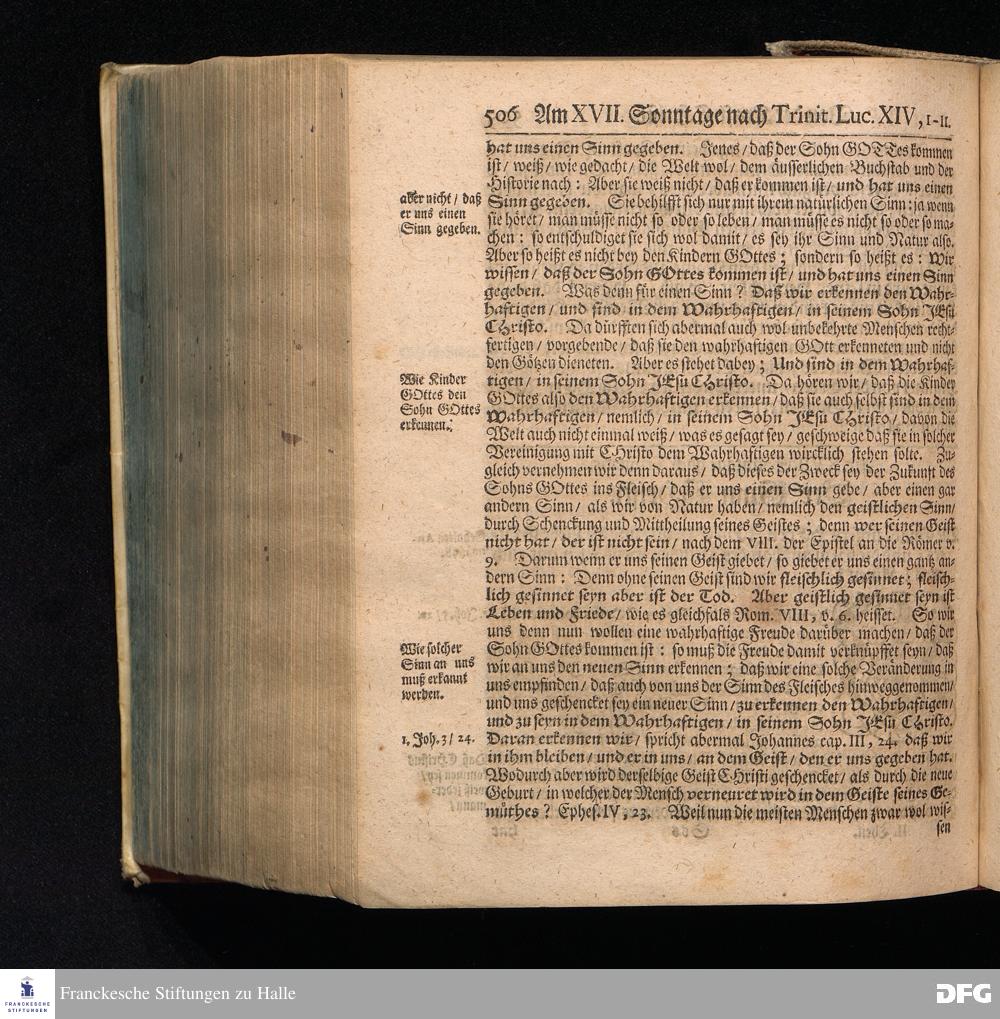 506 Am XVII. Sonntage nach Trinit. Luc. XIV, 1-11.
hat uns einen Sinn gegeben. Jenes/ daß der Sohn GOTTes kommen
ist/ weiß/ wie gedacht/ die Welt wol/ dem äusserlichen Buchstab und der
Historie nach: Aber sie weiß nicht/ daß er kommen ist/ und hat uns einen
Sinn gegeben. Sie behilfft sich nur mit ihrem natürlichen Sinn: ja wenn
sie höret/ man müsse nicht so oder so leben/ man müsse es nicht so oder so ma-
chen: so entschuldiget sie sich wol damit/ es sey ihr Sinn und Natur also.
Aber so heißt es nicht bey den Kindern GOttes; sondern so heißt es: Wir
wissen/ daß der Sohn GOttes kommen ist/ und hat uns einen Sinn
gegeben. Was denn für einen Sinn? Daß wir erkennen den Wahr-
haftigen/ und sind in dem Wahrhaftigen/ in seinem Sohn JEsu
CHristo. Da dürfften sich abermal auch wol unbekehrte Menschen recht-
fertigen/ vorgebende/ daß sie den wahrhaftigen GOtt erkenneten und nicht
den Götzen dieneten. Aber es stehet dabey; Und sind in dem Wahrhaf-
tigen/ in seinem Sohn JEsu CHristo. Da hören wir/ daß die Kinder
GOttes also den Wahrhaftigen erkennen/ daß sie auch selbst sind in dem
Wahrhaftigen/ nemlich/ in seinem Sohn JEsu CHristo/ davon die
Welt auch nicht einmal weiß/ was es gesagt sey/ geschweige daß sie in solcher
Vereinigung mit CHristo dem Wahrhaftigen wircklich stehen solte. Zu-
gleich vernehmen wir denn daraus/ daß dieses der Zweck sey der Zukunft des
Sohns GOttes ins Fleisch/ daß er uns einen Sinn gebe/ aber einen gar
andern Sinn/ als wir von Natur haben/ nemlich den geistlichen Sinn/
durch Schenckung und Mittheilung seines Geistes; denn wer seinen Geist
nicht hat/ der ist nicht sein/ nach dem VIII. der Epistel an die Römer v.
9. Darum wenn er uns seinen Geist giebet/ so giebet er uns einen gantz an-
dern Sinn: Denn ohne seinen Geist sind wir fleischlich gesinnet; fleisch-
lich gesinnet seyn aber ist der Tod. Aber geistlich gesinnet seyn ist
Leben und Friede/ wie es gleichfals Rom. VIII, v. 6. heisset. So wir
uns denn nun wollen eine wahrhaftige Freude darüber machen/ daß der
Sohn GOttes kommen ist: so muß die Freude damit verknüpffet seyn/ daß
wir an uns den neuen Sinn erkennen; daß wir eine solche Veränderung in
uns empfinden/ daß auch von uns der Sinn des Fleisches hinweggenommen/
und uns geschencket sey ein neuer Sinn/ zu erkennen den Wahrhaftigen/
und zu seyn in dem Wahrhaftigen/ in seinem Sohn JEsu CHristo.
Daran erkennen wir/ spricht abermal Johannes cap. III, 24. daß wir
in ihm bleiben/ und er in uns/ an dem Geist/ den er uns gegeben hat.
Wodurch aber wird derselbige Geist CHristi geschencket/ als durch die neue
Geburt/ in welcher der Mensch verneuret wird in dem Geiste seines Ge-
müthes? Ephes. IV, 23. Weil nun die meisten Menschen zwar wol wis-
sen
aber nicht/ daß
er uns einen
Sinn gegeben.
Wie Kinder
GOttes den
Sohn GOttes
erkennen.
Wie solcher
Sinn an uns
muß erkannt
werden.
1. Joh. 3/ 24.
FRANCKESCHE
STIFTUNGEN
Franckesche Stiftungen zu Halle
DFG